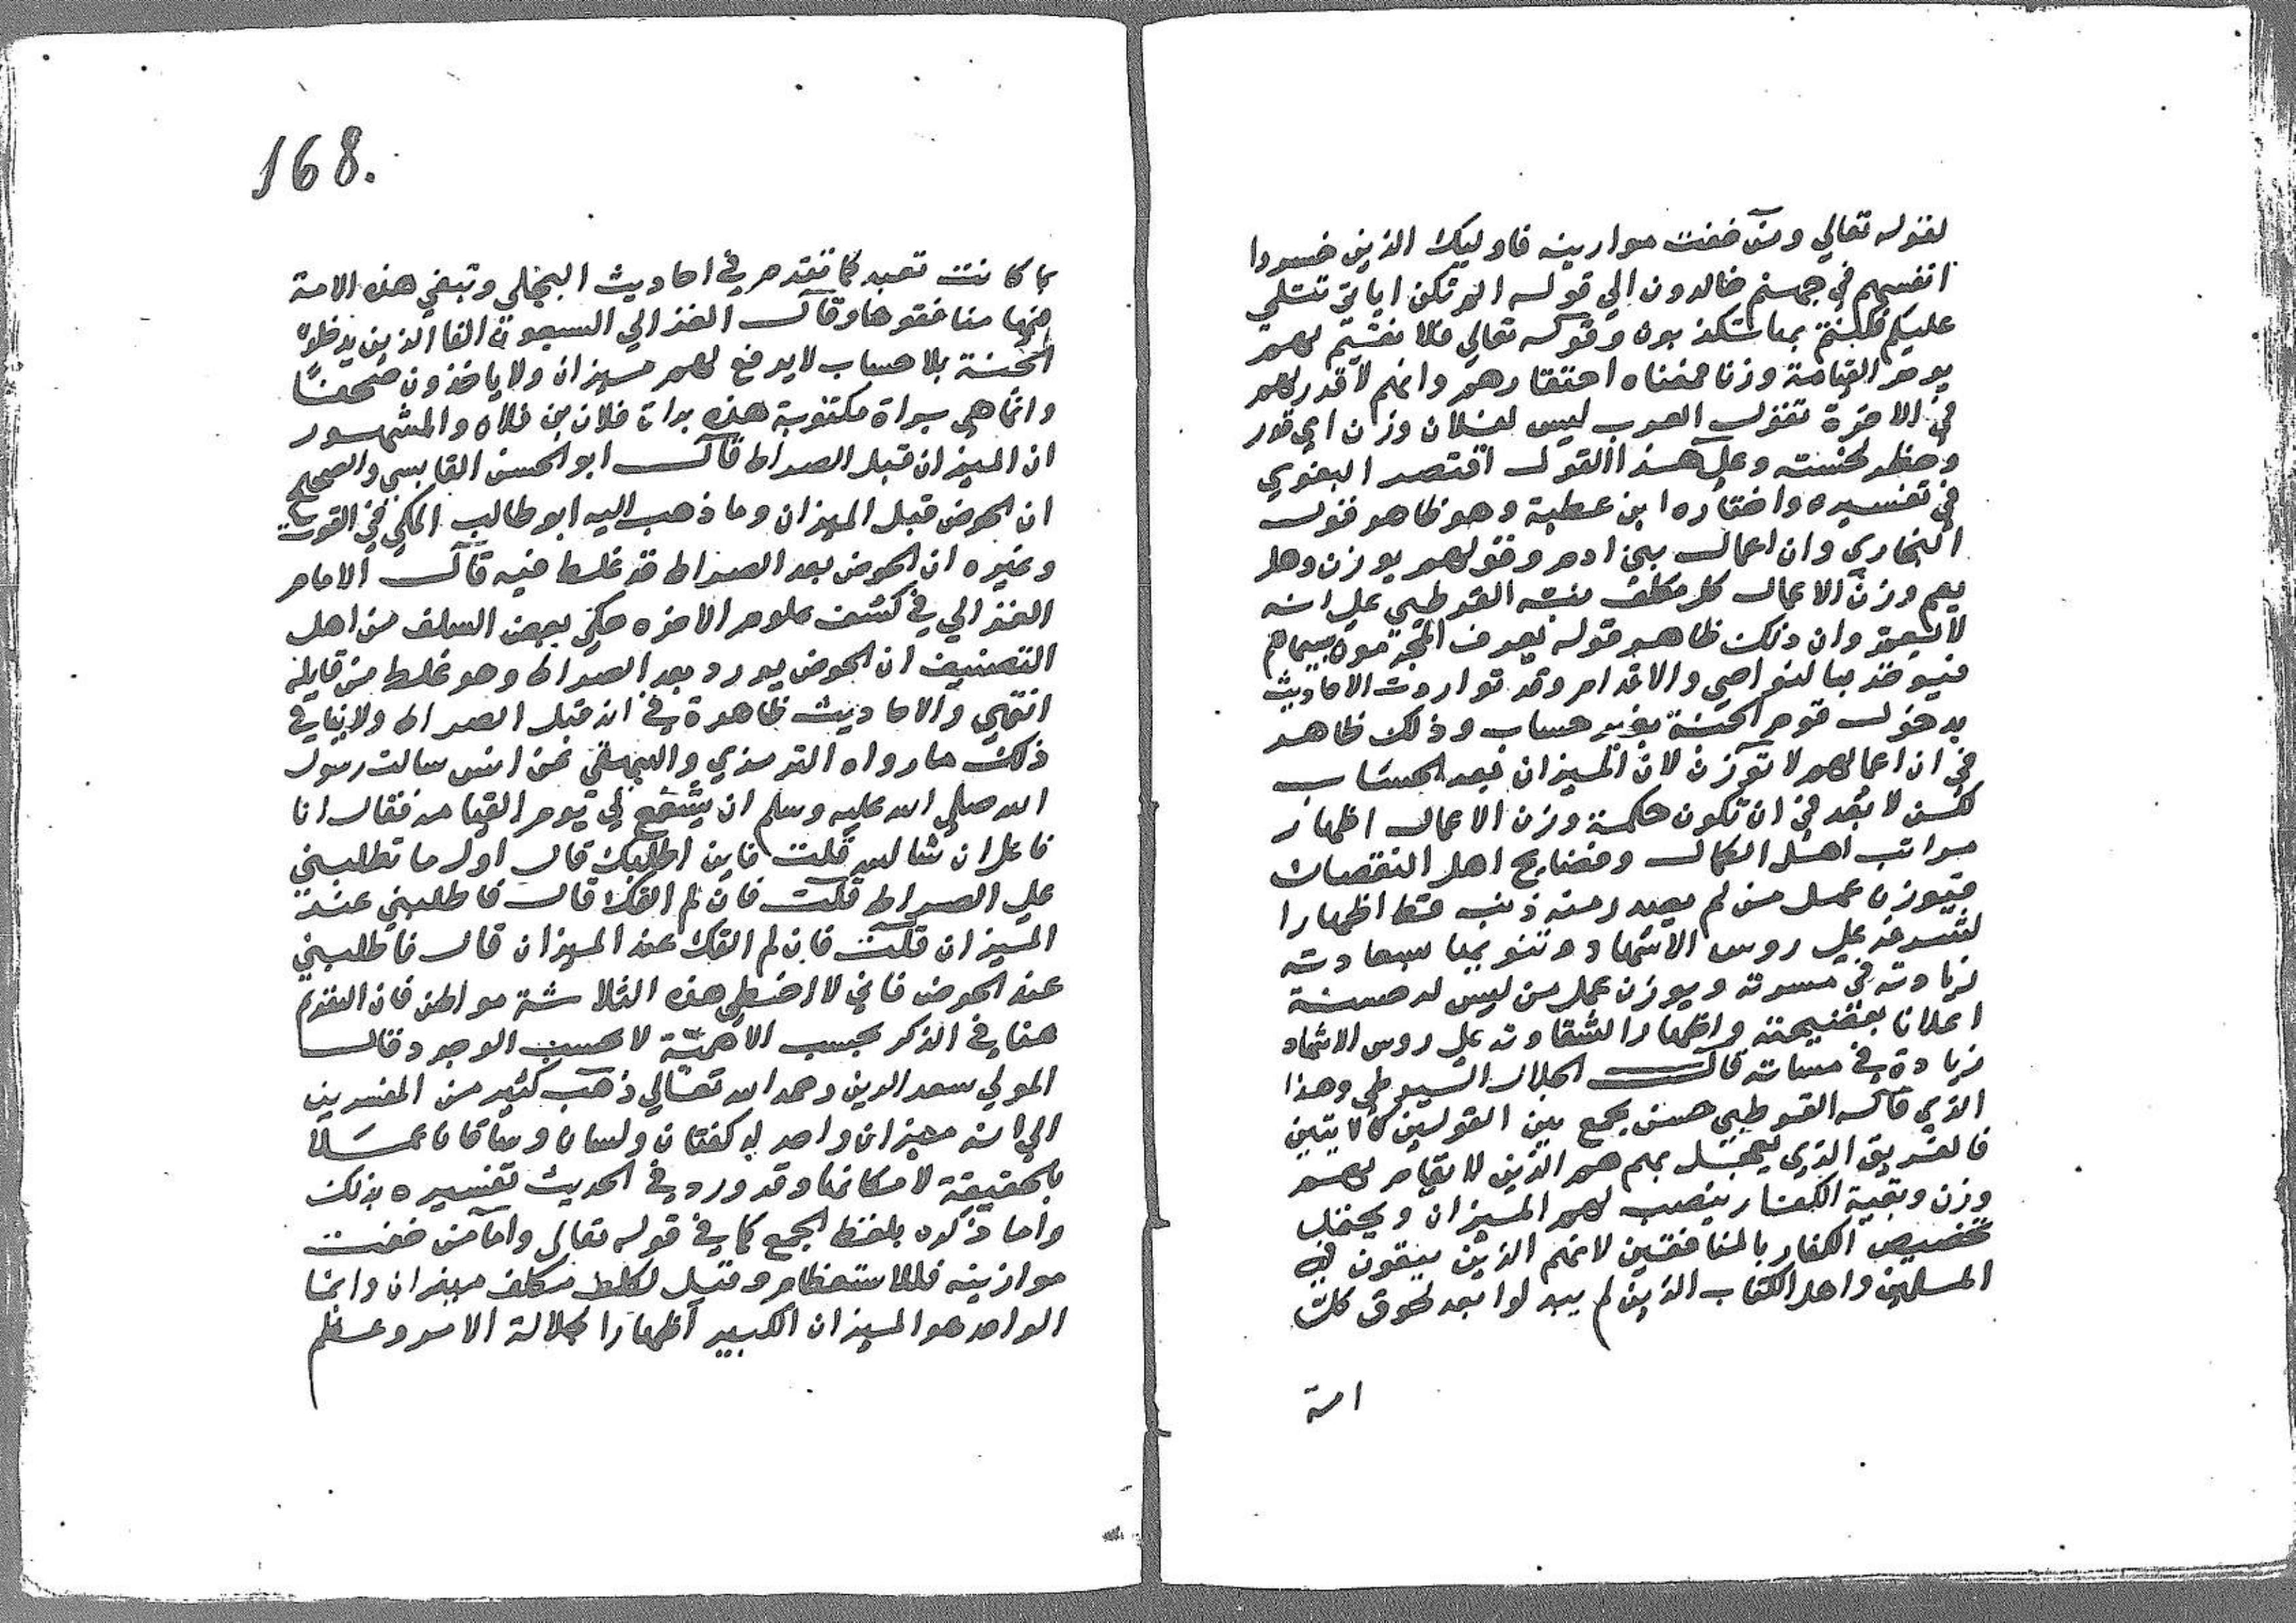 لقوله تعالي ومن خفت موازينه فاوليك الذين خسروا
انفسهم في جهنم خالدون الي قوله الم تكن اياتي تتلي
عليكم فكنتم بها تكذبون وقوله تعالي فلا نقيم لهم
يوم القيامة وزنا فمعناه احتقارهم وانهم لا قدر لهم
في الاخرة تقول العرب ليس لفلان وزن اي قدر
وحظ لخسته وعلي هذا القول اقتصر البغوي
في تفسيره واختاره ابن عطية وهو ظاهر قول
البخاري وان اعمال بني ادم وقولهم يوزن وهل
يعم وزن الاعمال كل مكلف نبه القرطبي علي انه
لا يعم وان ذلك ظاهر قوله يعرف المجرمون بسيماهم
فيوخذ بالنواصي والاقدام وقد تواردت الاحاديث
بدخول قوم الجنة بغير حساب وذلك ظاهر
في ان اعمالهم لا توزن لان الميزان فبعد الحساب
لكن لا بعد في ان تكون حكمة وزن الاعمال اظهار
مراتب اهل الكمال وفضايح اهل النقصان
فيوزن عمل من لم يصدر منه ذنب قط اظهارا
لشرفه علي روس الاشهاد وتنويها بسعادته
زيادته في مسرته ويوزن عمل من ليس له حسنة
اعلانا بفضيحته واظهارا لشقاوته علي روس الاشهاد
زيادة في مساته قال الجلال السيوطي وهذا
الذي قاله القرطبي حسن يجمع بين القولين كالايتين
فالفريق الذي يعجل بهم هم الذين لا يقام لهم
وزن وبقية الكفار ينصب لهم الميزان ويحتمل
تخصيص الكفار بالمنافقين لانهم الذين يبقون في
المسلمين واهل الكتاب الذين لم يبدلوا بعد لحوق كل
امة
168.
بما كانت تعبد كما تقدم في احاديث التجلي وتبقي هذه الامة
فيها منافقوها وقال الغزالي السبعون الفا الذين يدخلون
الجنة بلا حساب لا يرفع لهم ميزان ولا ياخذون صحفا
وانما هي براة مكتوبة هذه براة فلان بن فلان والمشهور
ان الميزان قبل الصراط قال ابو الحسن القابسي والصحيح
ان الحوض قبل الميزان وما ذهب اليه ابو طالب المكي في القوت
وغيره ان الحوض بعد الصراط قد غلط فيه قال الامام
الغزالي في كشف علوم الاخره حكي بعض السلف من اهل
التصنيف ان الحوض يورد بعد الصراط وهو غلط من قايله
انتهي والاحاديث ظاهرة في انه قبل الصراط ولا ينافي
ذلك ما رواه الترمذي والبيهقي عن انس سالت رسول
الله صلي الله عليه وسلم ان يشفع لي يوم القيامه فقال انا
فاعل ان شا الله قلت فاين اطلبك قال اول ما تطلبني
علي الصراط قلت فان لم القك قال فاطلبني عند
الميزان قلت فان لم القك عند الميزان قال فاطلبني
عند الحوض فاني لا اخطي هذه الثلاثة مواطن فان التقديم
هنا في الذكر بحسب الاهمية لا بحسب الوجود قال
المولي سعد الدين رحمه الله تعالي ذهب كثير من المفسرين
الي انه ميزان واحد له كفتان ولسان وساقان عملا
بالحقيقة لامكانها وقد ورد في الحديث تفسيره بذلك
واما ذكره بلفظ الجمع كما في قوله تعالي واما من خفت
موازينه فللاستعظام وقيل لكل مكلف ميزان وانما
الواحد هو الميزان الكبير اظهارا لجلالة الامر وعظم